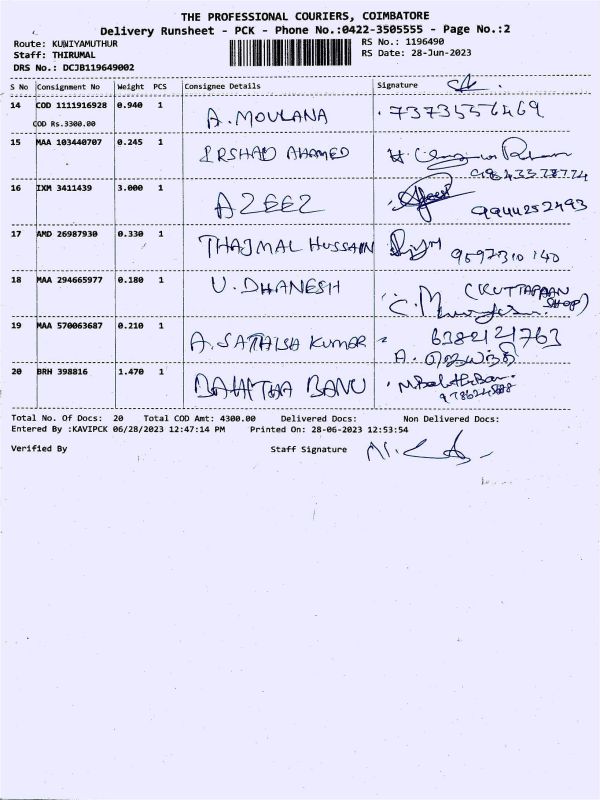 THE PROFESSIONAL COURIERS, COIMBATORE
Delivery Runsheet - PCK - Phone No.:0422-3505555 - Page No.:2
Route: KUNIYAMUTHUR RS No.: 1196490
Staff: THIRUMAL RS Date: 28-Jun-2023
DRS No.: DCJB119649002
S No Consignment No Weight PCS Consignee Details Signature
14 COD 1111916928 0.940 1 A. MOULANA 7373556469
COD Rs.3300.00
15 MAA 103440707 0.245 1 IRSHAD AHAMED
9843578774
16 IXM 3411439 3.000 1 AZEEZ
9944252493
17 AMD 26987930 0.330 1 THAJMAL HUSSAIN 9597310140
18 MAA 294665977 0.180 1 U. DHANESH (KUTTAPAAN SHOP)
19 MAA 570063687 0.210 1 A. SATHISH KUMAR 6382121763
A. ஜெயந்தி
20 BRH 398816 1.470 1 BANU
Total No. Of Docs: 20 Total COD Amt: 4300.00 Delivered Docs: Non Delivered Docs:
Entered By :KAVIPCK 06/28/2023 12:47:14 PM Printed On: 28-06-2023 12:53:54
Verified By Staff Signature